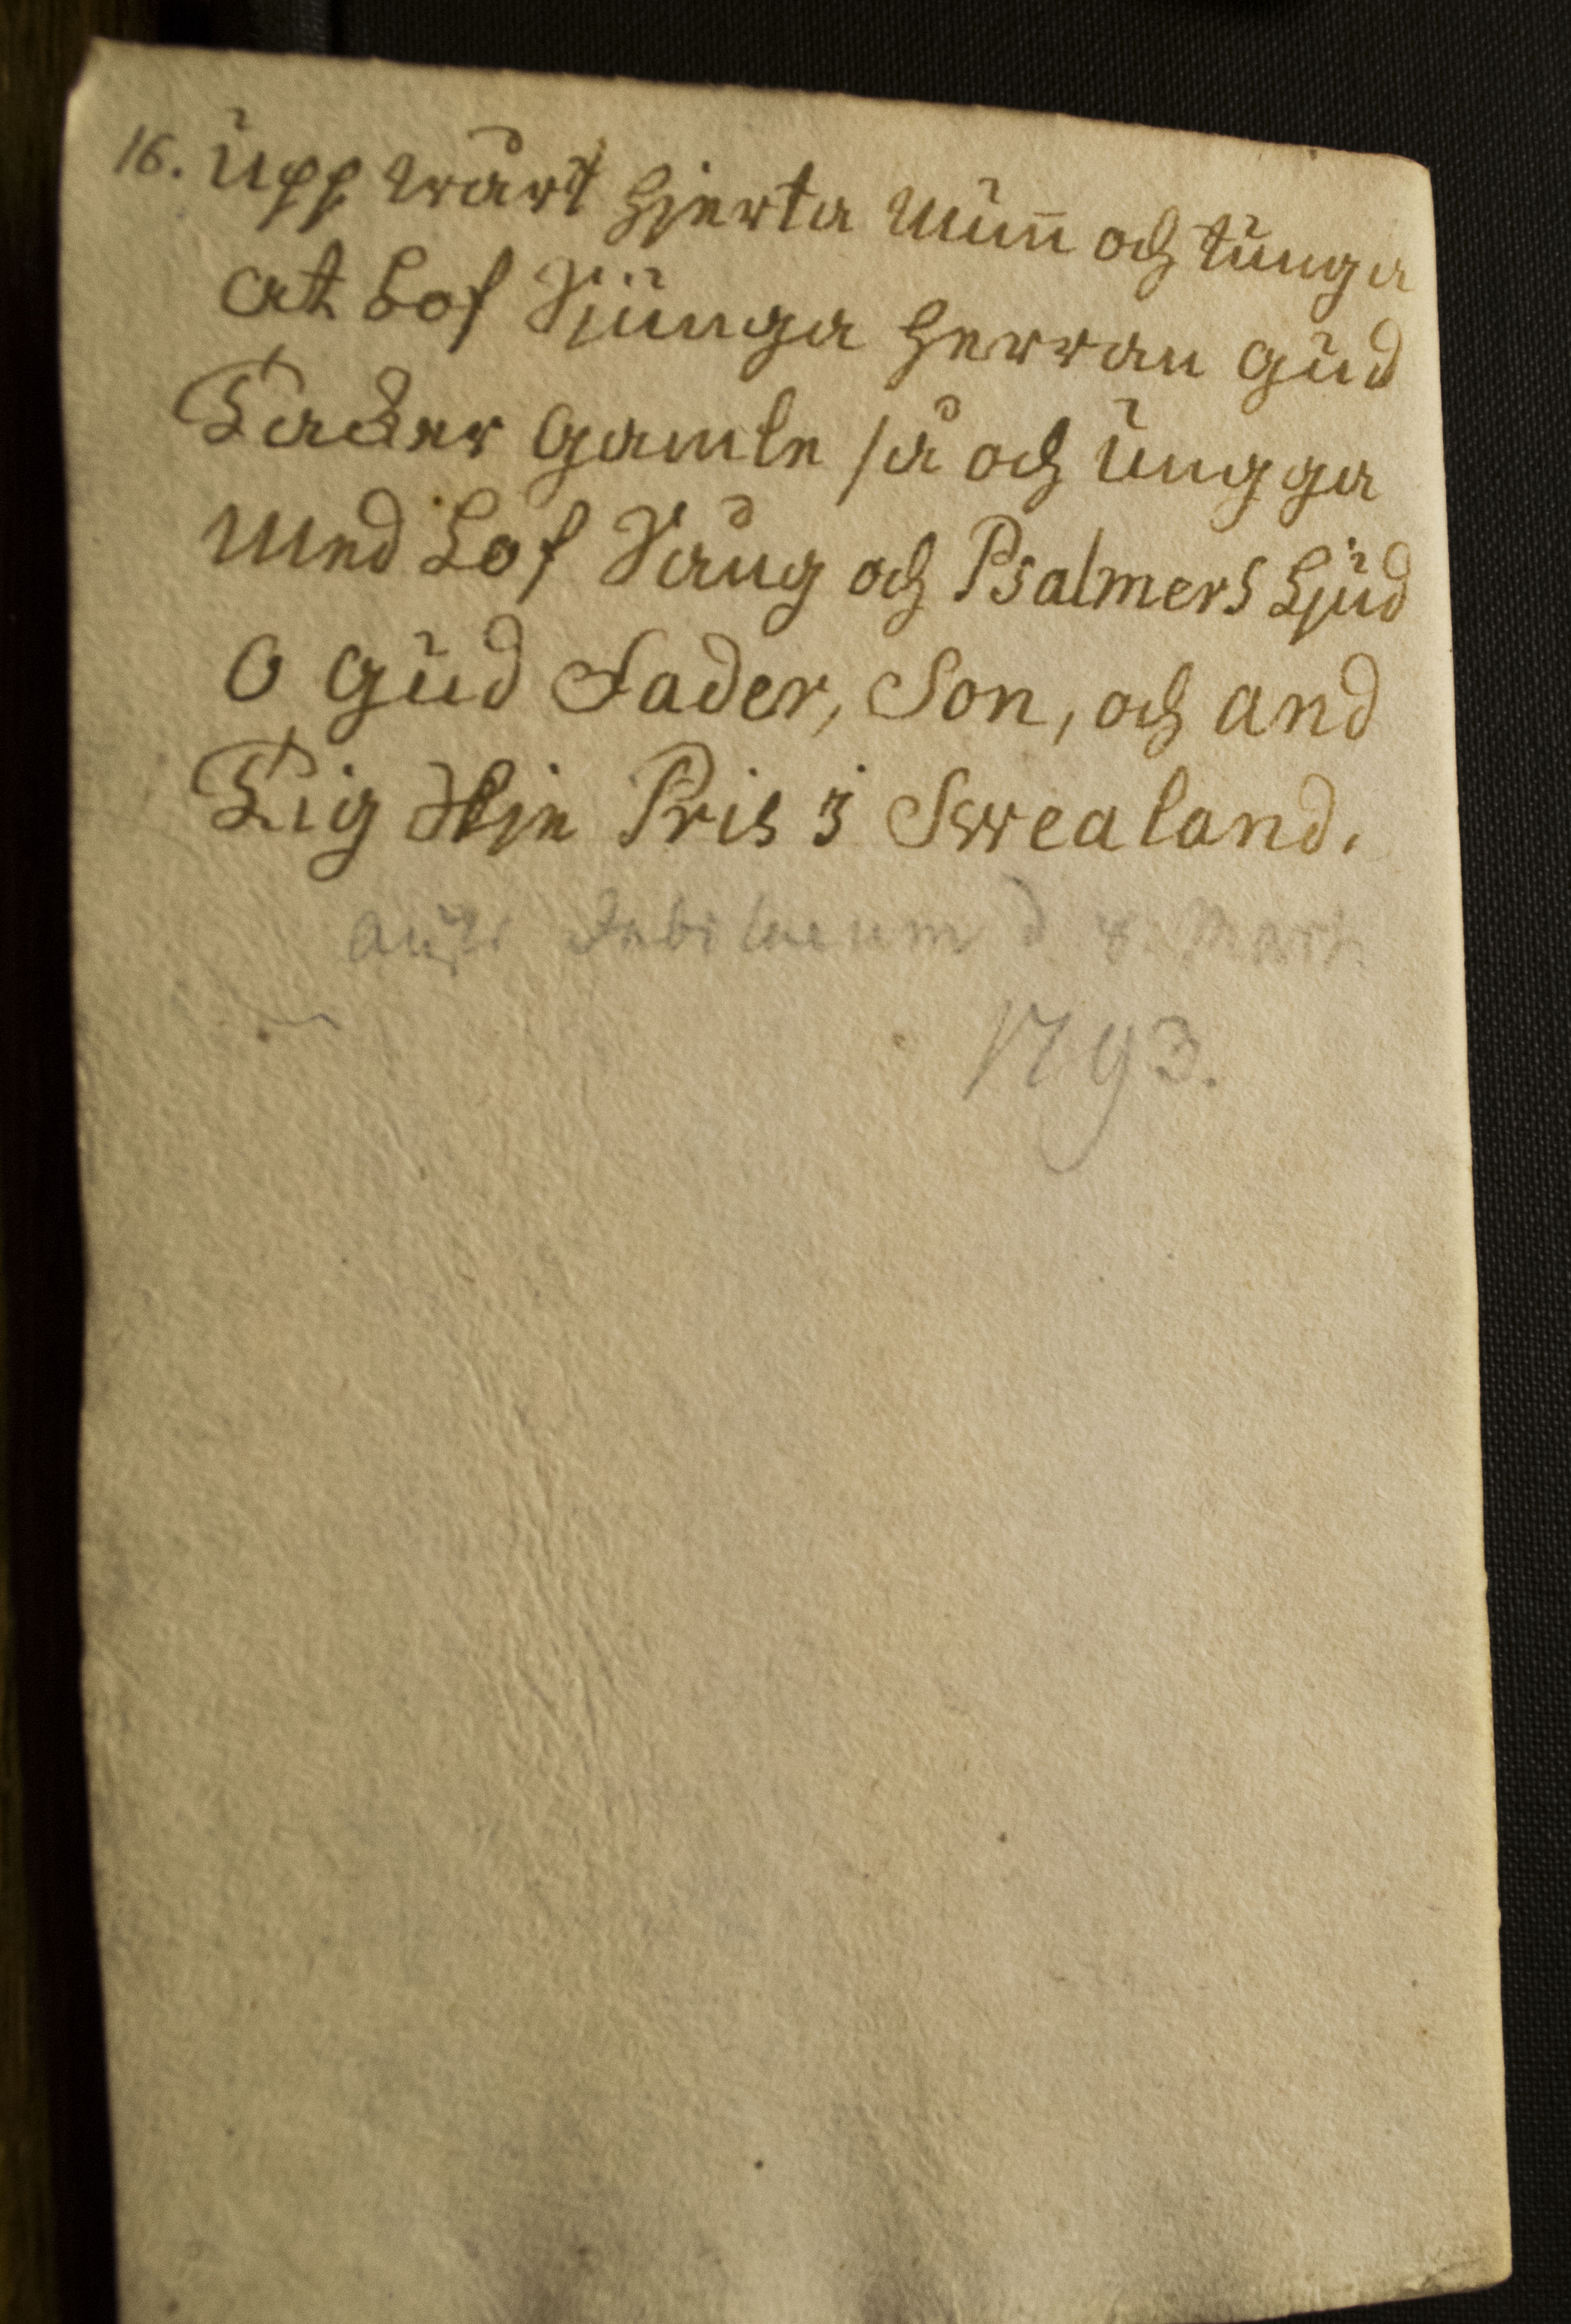 16. Upp wårt Hjerta Mun̄ och tunga
at Lof Sjunga Herran Gud
Tacker Gamle så och Ungga
Med Lof Sång och Psalmers Ljud
O Gud Fader, Son, och And
Tig Ske Pris i Swealand.
Jubilaeum d 8. Mars
1793.